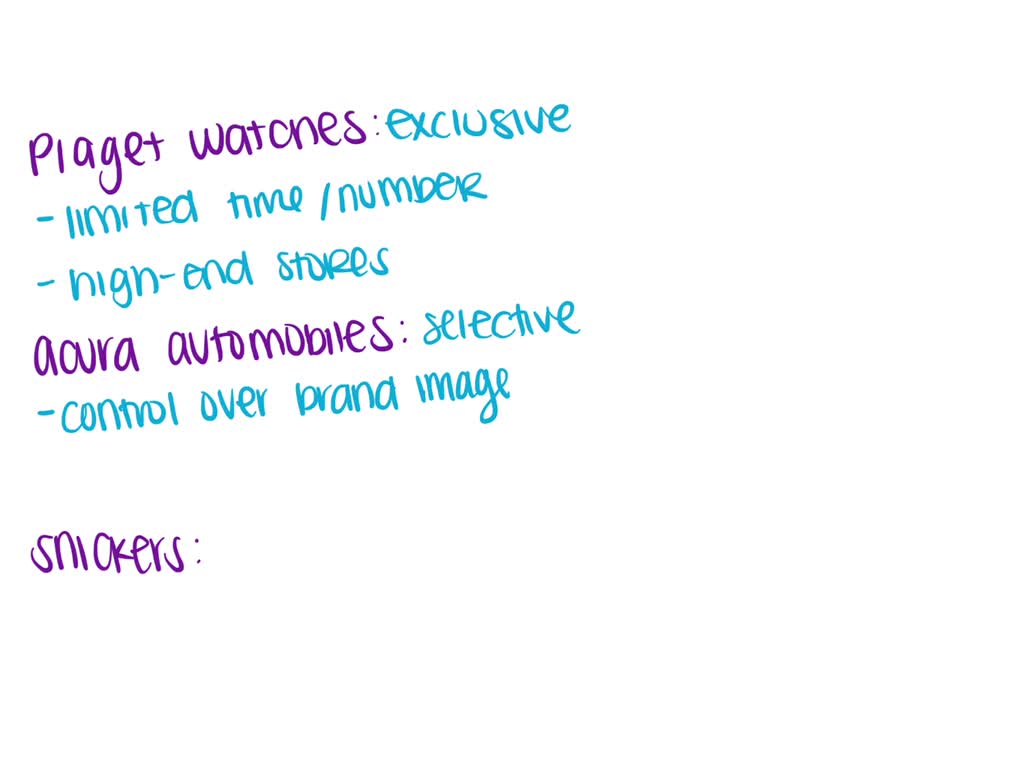 Piaget watches: exclusive
- limited time/number
- high-end stores
acura automobiles: selective
- control over brand image
snickers: